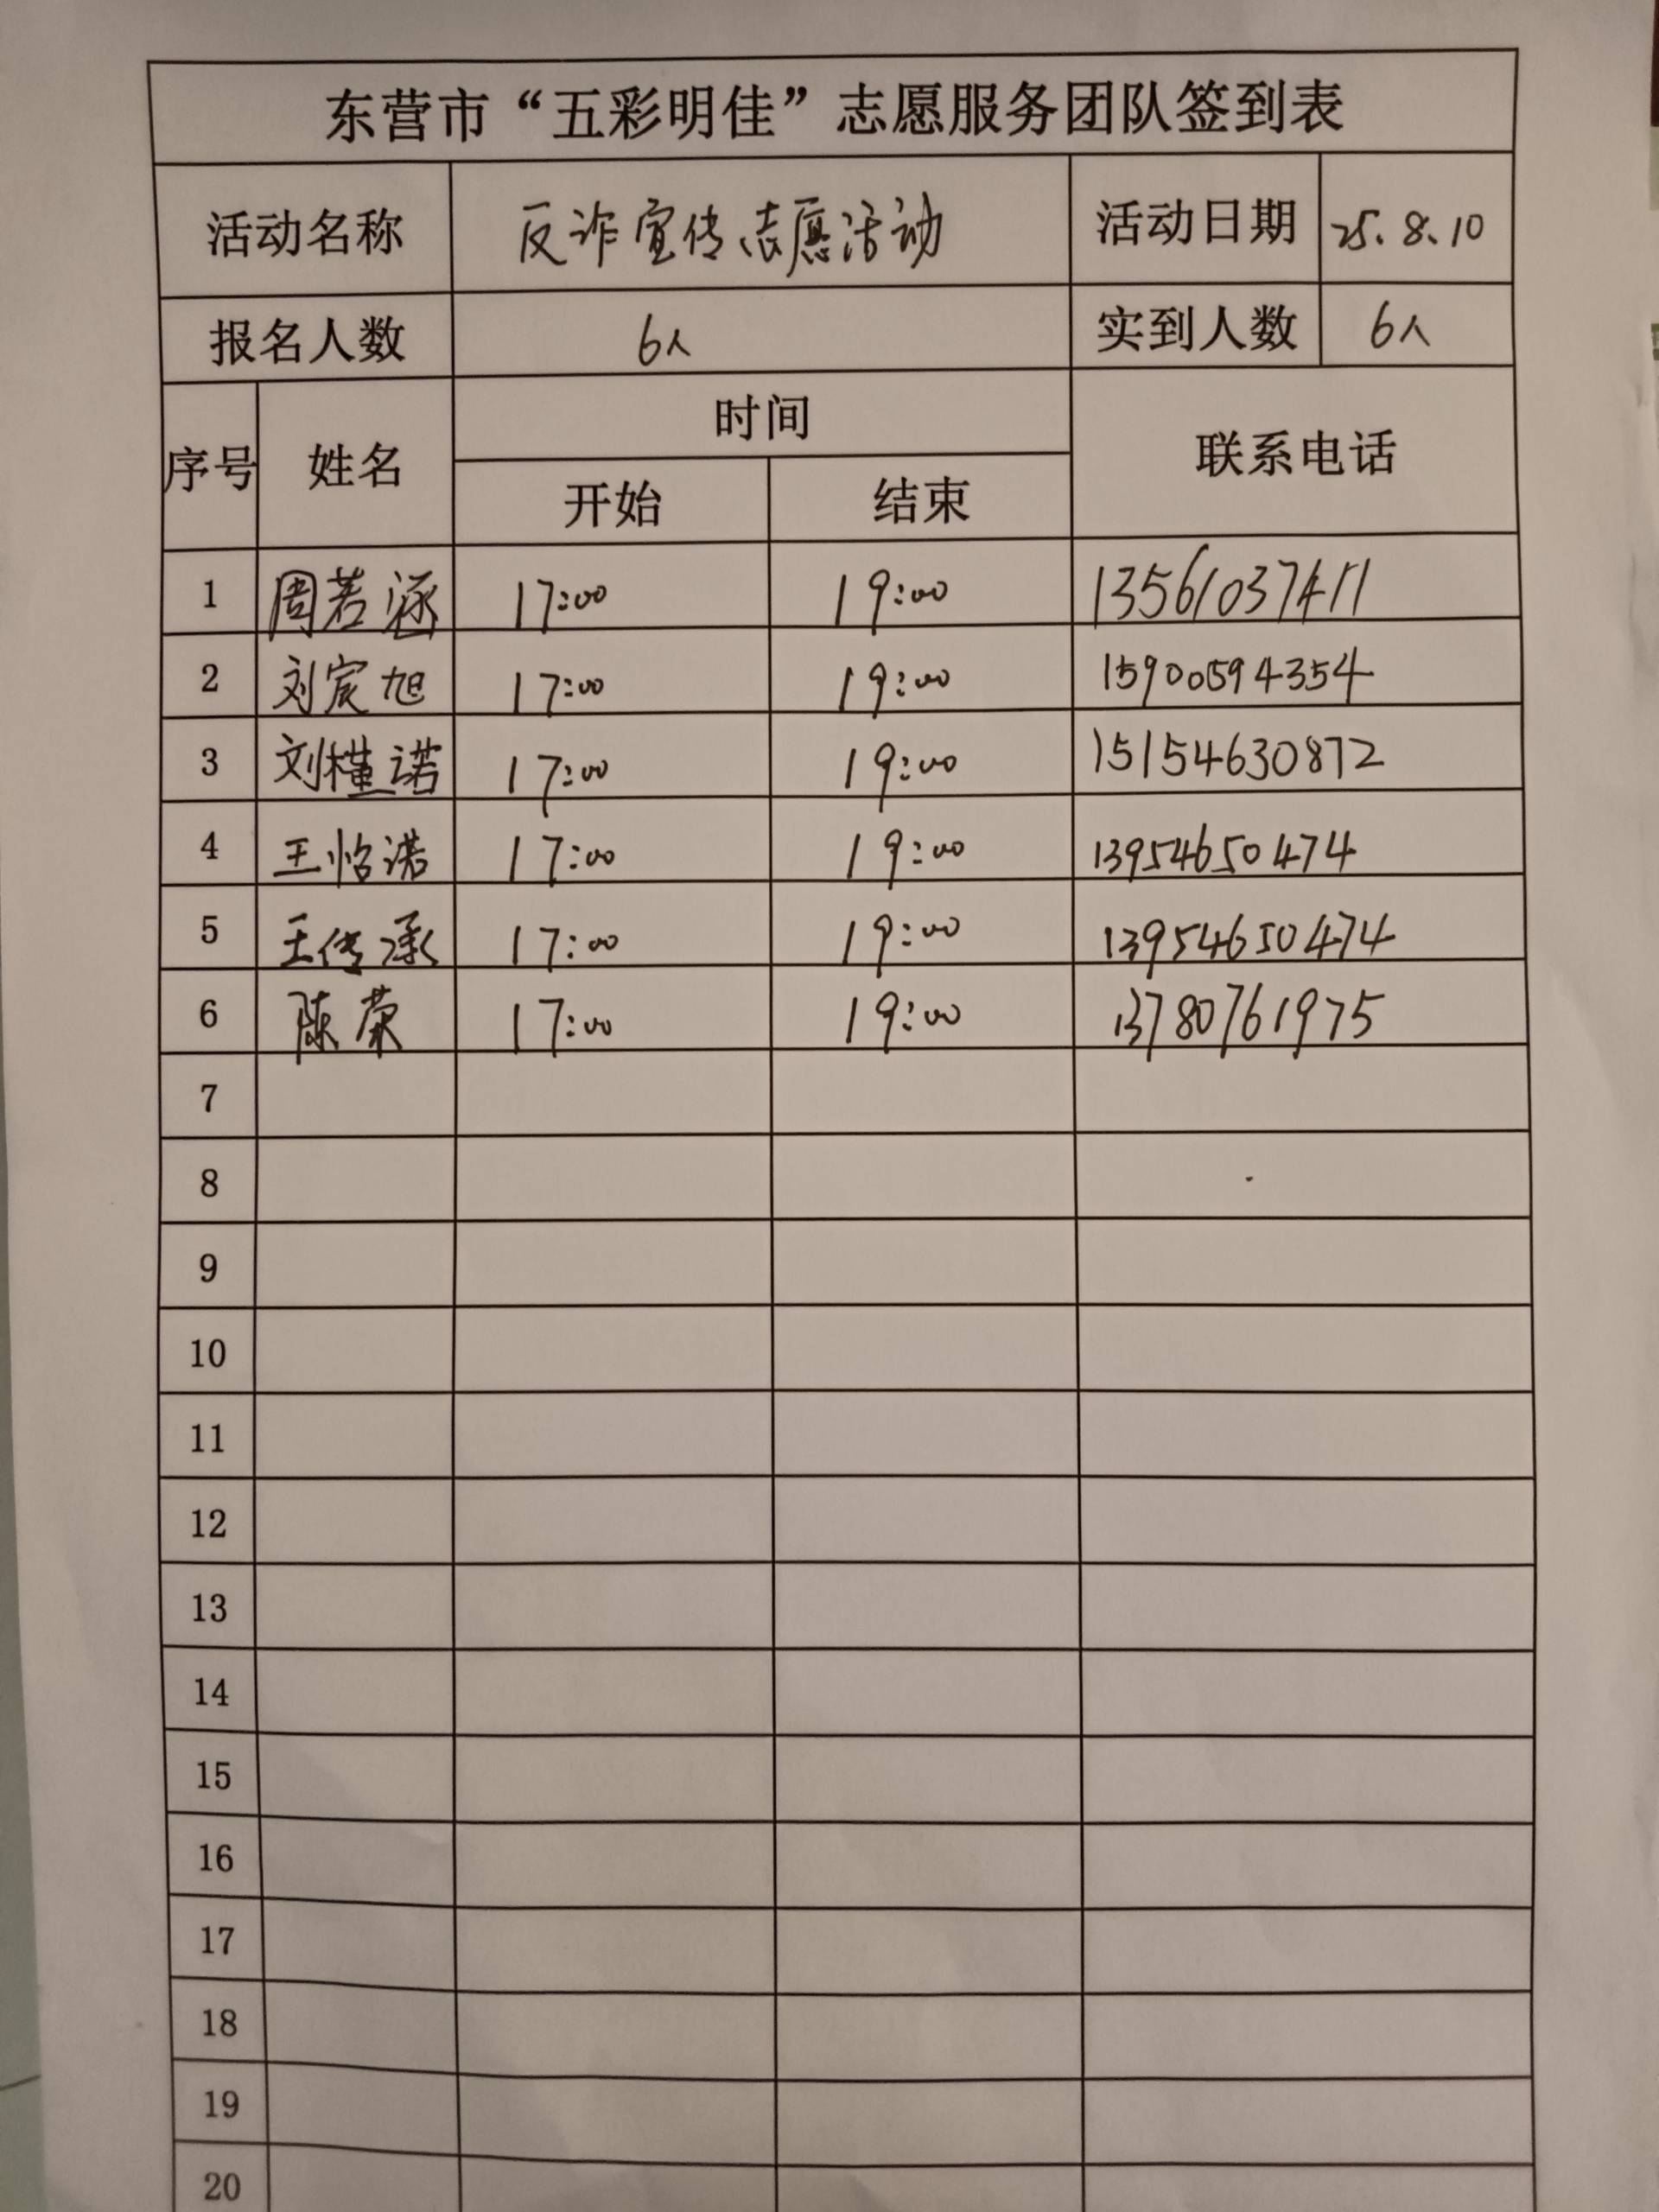 东营市“五彩明佳”志愿服务团队签到表
活动名称 反诈宣传志愿活动 活动日期 25.8.10
报名人数 6人 实到人数 6人
序号 姓名 时间 联系电话
开始 结束
1 周若涵 17:00 19:00 13561037411
2 刘宸旭 17:00 19:00 15900594354
3 刘槿诺 17:00 19:00 15154630872
4 王怡诺 17:00 19:00 13954650474
5 王传承 17:00 19:00 13954650474
6 陈荣 17:00 19:00 13780761975
7
8
9
10
11
12
13
14
15
16
17
18
19
20